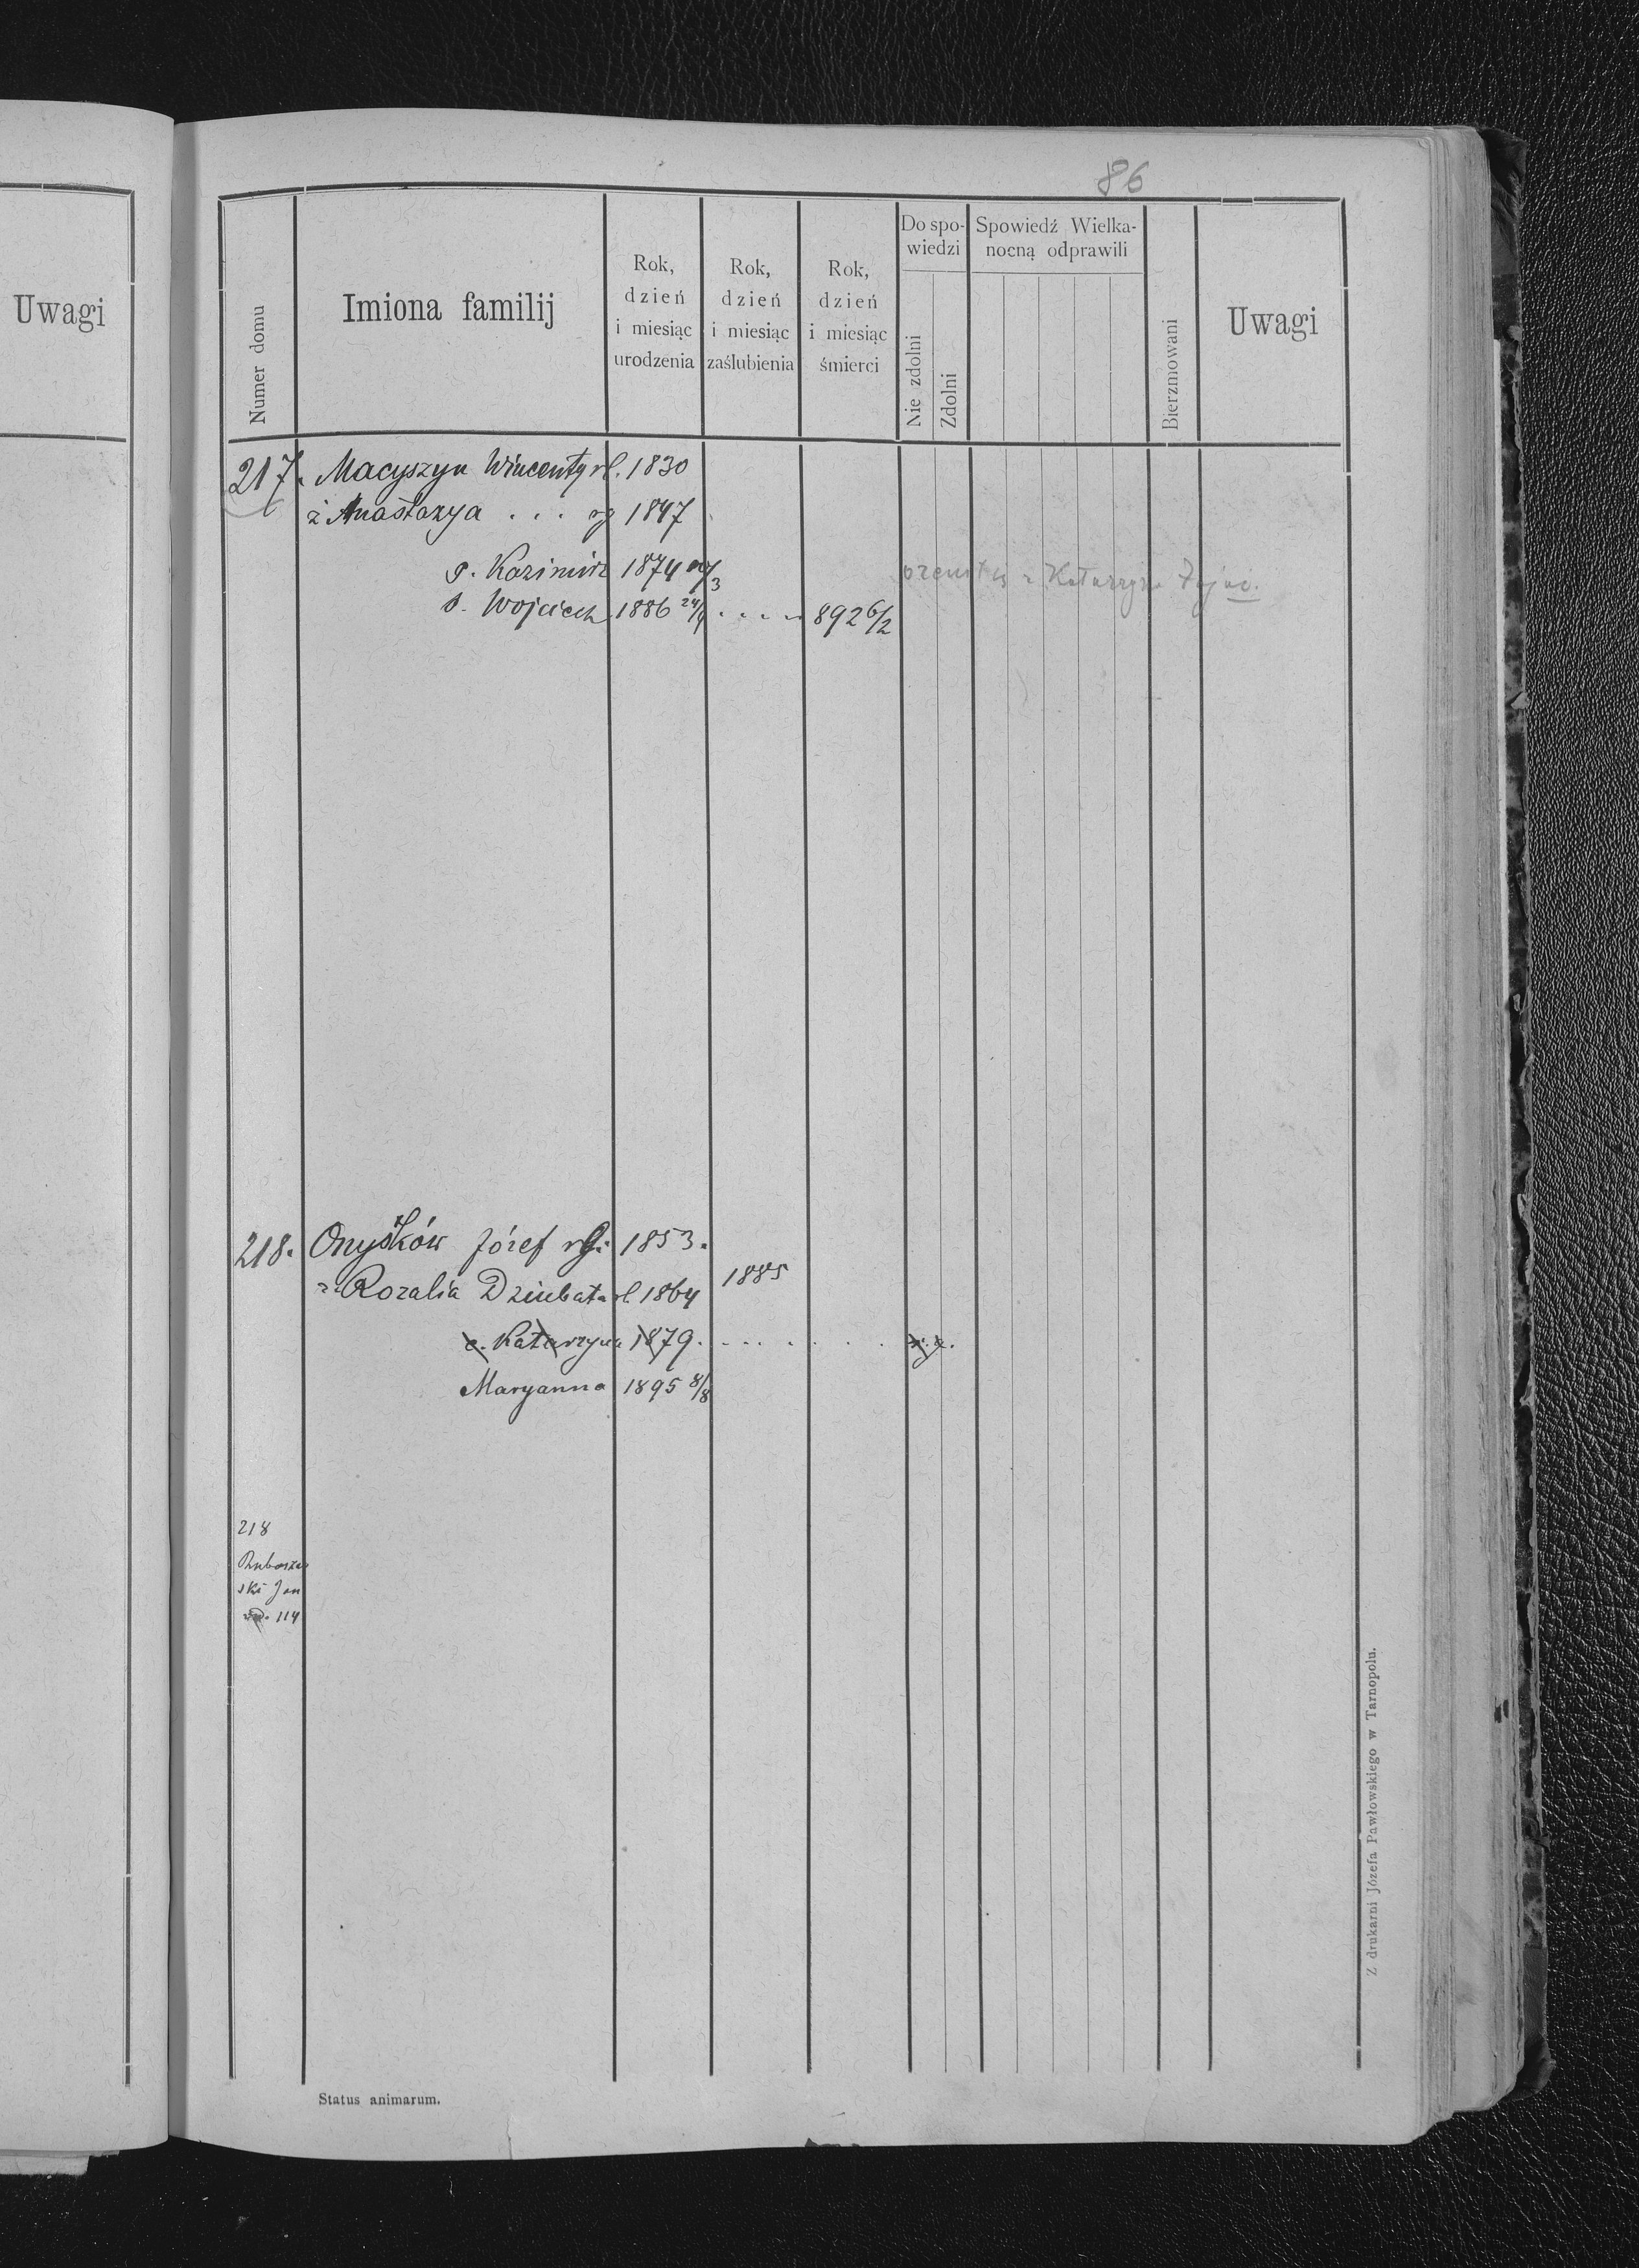 86
Uwagi
Numer domu
Imiona familij
Rok, dzień i miesiąc urodzenia
Rok, dzień i miesiąc zaślubienia
Rok, dzień i miesiąc śmierci
Do spo-
wiedzi
Nie zdolni
Zdolni
Spowiedź Wielka-
nocną odprawili
Bierzmowani
Uwagi
217. Macyszyn Wincenty rł. 1830
ż Anastazya . . . rg 1847
s. Kazimirz 1874 /3 z Katarzyna Zając.
s. Wojciech 1886 24/4 . . . . 892 6/2
218. Onyśków Józef rg. 1853.
Rozalia Dziubata rł 1864 1885
c. Katarzyna 1879. . . . . . . .
Maryanna 1895 8/8
218
ski Jan
114
Status animarum.
Z drukarni Józefa Pawłowskiego w Tarnopolu.